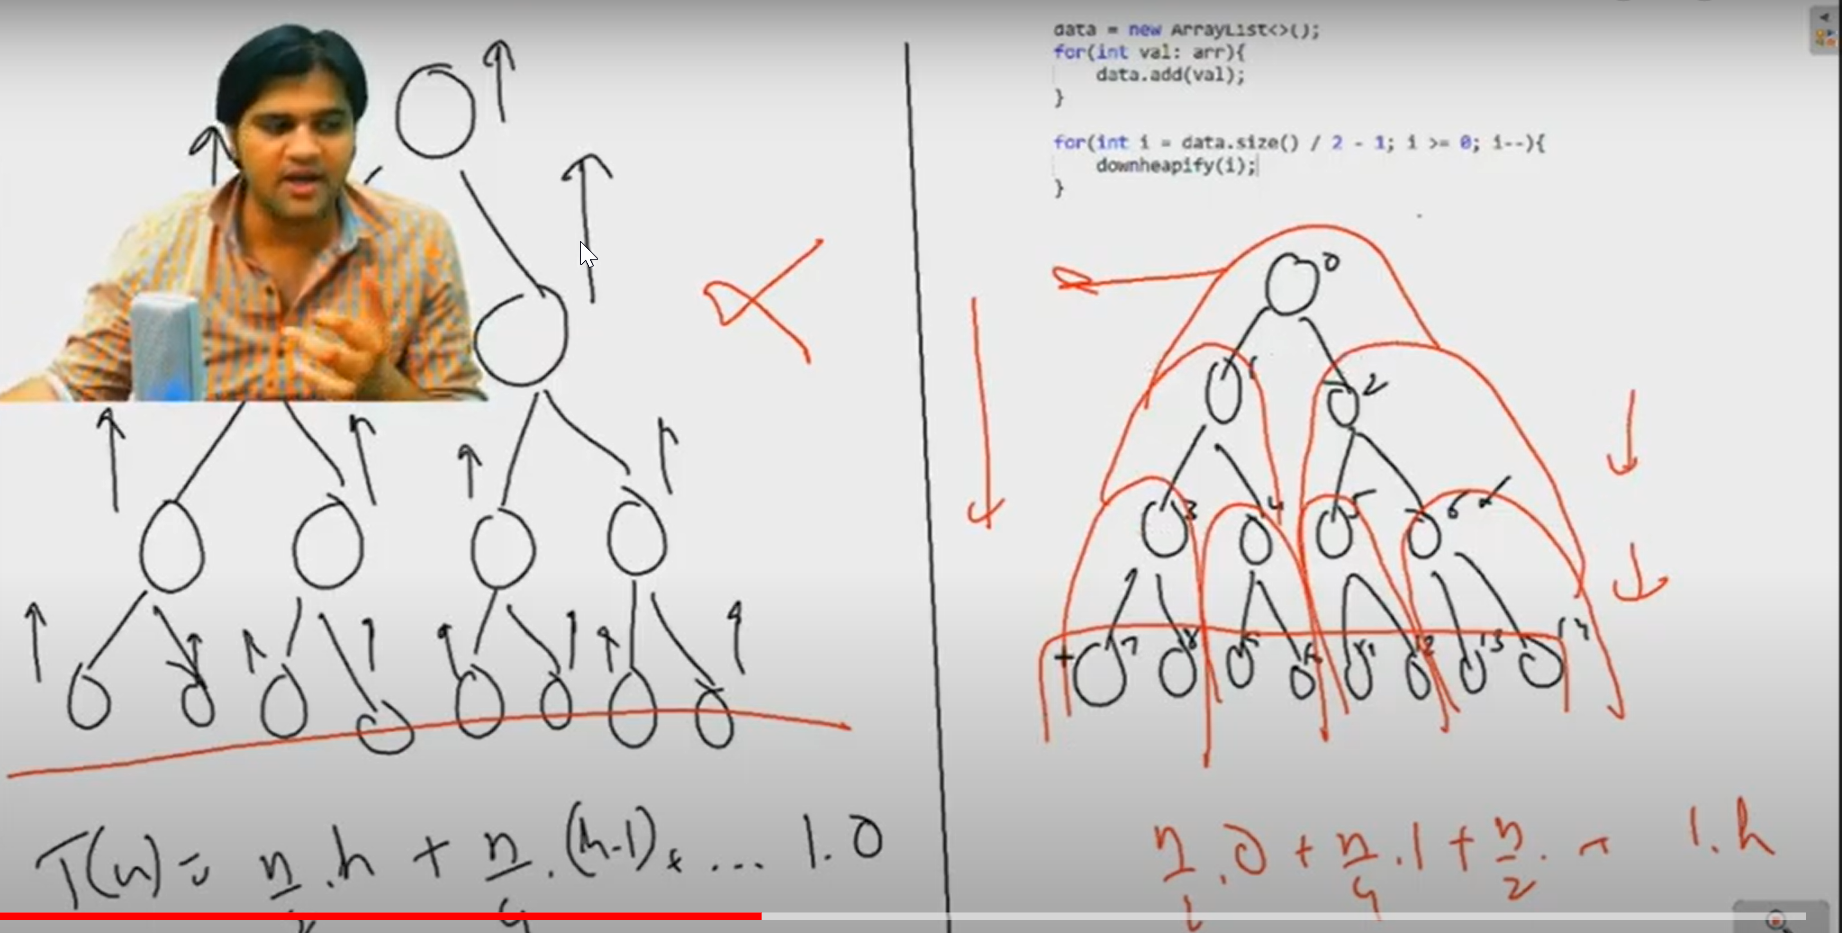 data = new ArrayList<>();
for(int val: arr){
    data.add(val);
}
for(int i = data.size() / 2 - 1; i >= 0; i--){
    downheapify(i);
}
0
1 2
3 4 5 6
7 8 9 11 12 13 14
T(n) = n/2 . h + n/4 . (h-1) + ... 1.0
n/2 . 0 + n/4 . 1 + n/2 . - 1.h